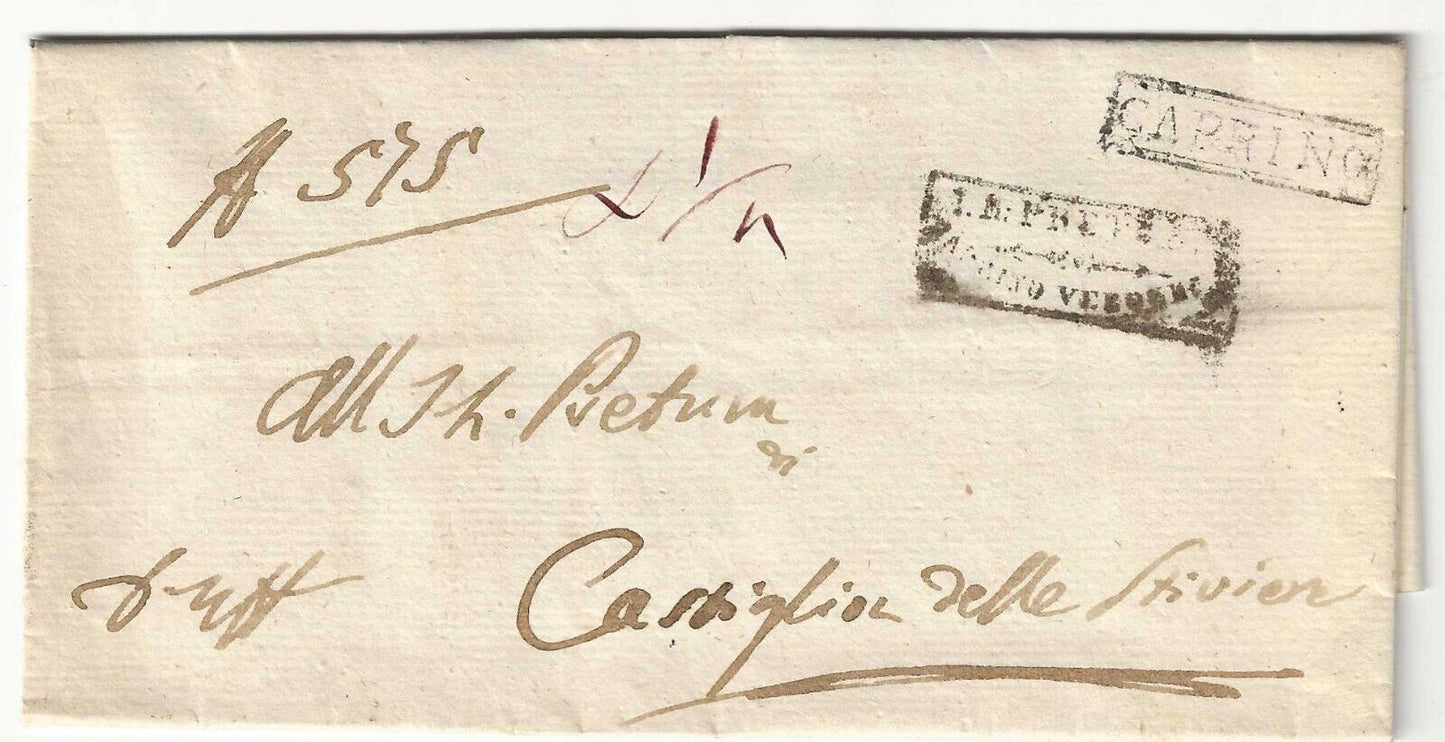 A 575
CAPRINO
I. R. PRETURA
CAPRINO VERONESE
All I. R. Pretura
di
Castiglion delle Stiviere